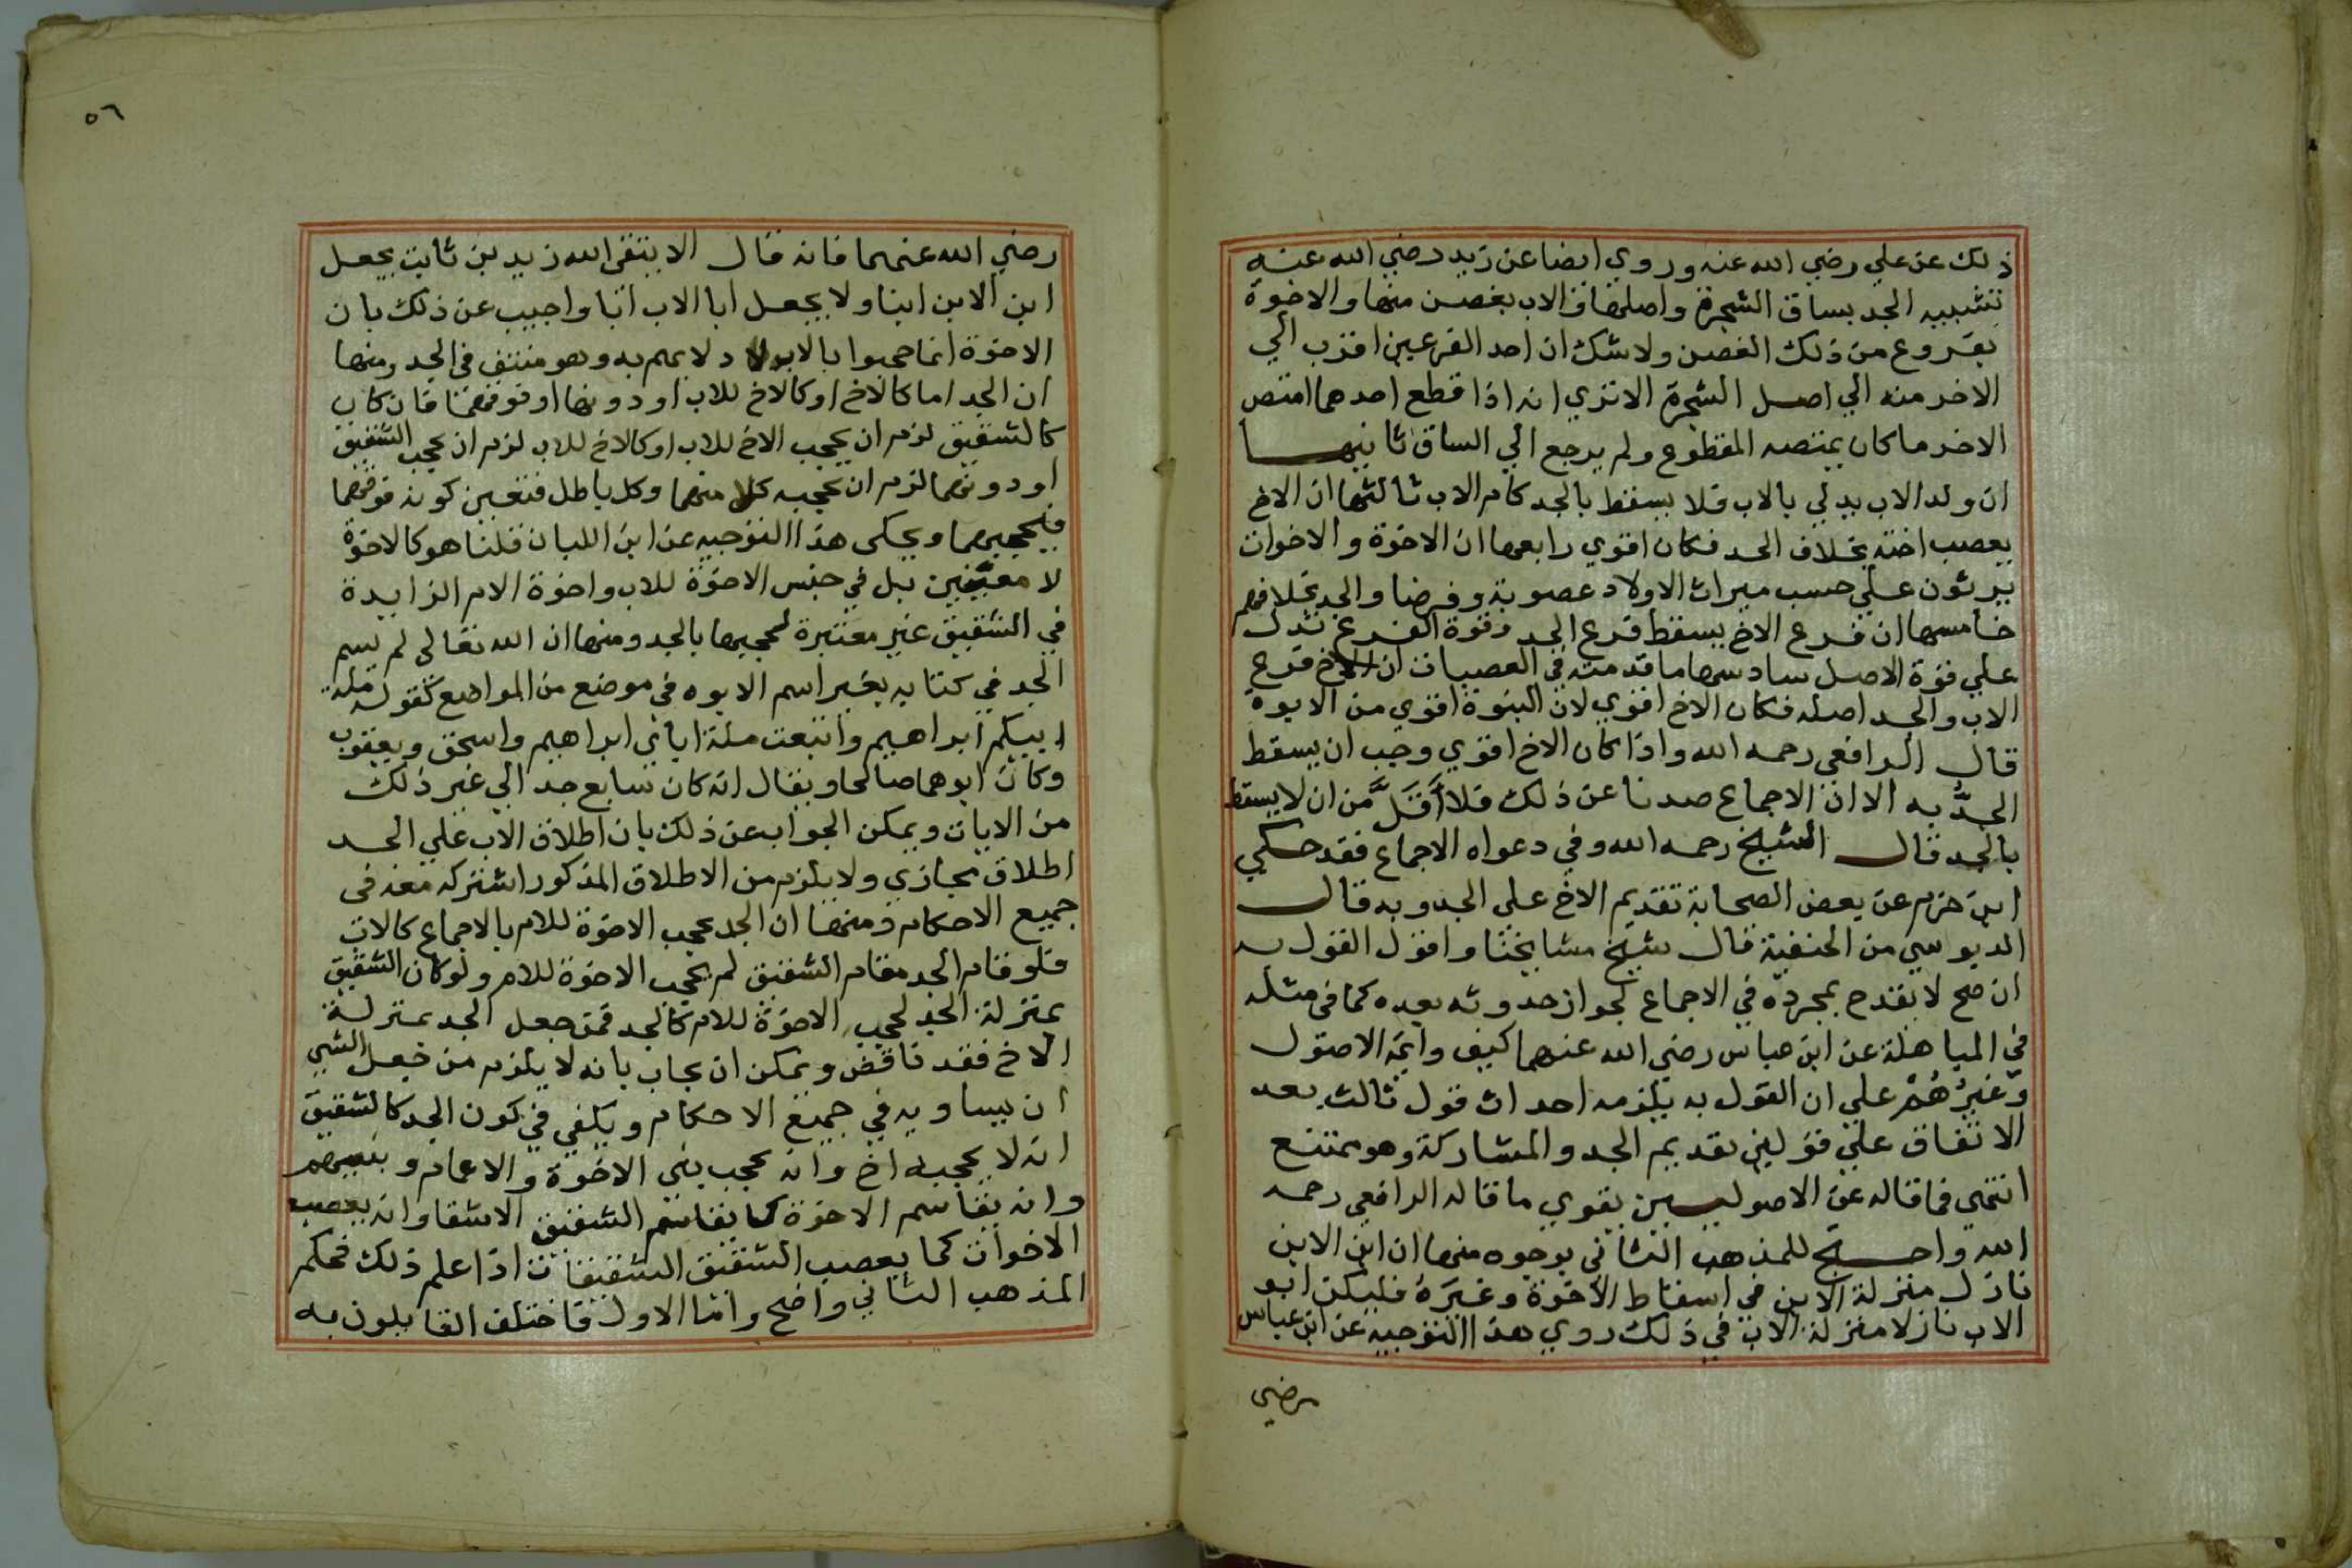 ذلك عن علي رضي الله عنه وروي ايضا عن زيد رضي الله عنه
تشبيه الجد بساق الشجرة واصلها والاب بغصن منها والاخوة
بفروع من ذلك الغصن ولا شك ان احد الفرعين اقرب الي
الاخر منه الي اصل الشجرة الا تري انه اذا قطع احدهما امتص
الاخر ما كان يمتصه المقطوع ولم يرجع الي الساق ثانيها
ان ولد الاب يدلي بالاب فلا يسقط بالجد كام الاب ثالثها ان الاخ
يعصب اخته بخلاف الجد فكان اقوي رابعها ان الاخوة والاخوات
يرثون علي حسب ميراث الاولاد عصوبة وفرضا والجد بخلافهم
خامسها ان فرع الاخ يسقط فرع الجد وقوة الفرع تدل
علي قوة الاصل سادسها ما قدمته في العصبات ان الاخ فرع
الاب والجد اصله فكان الاخ اقوي لان البنوة اقوي من الابوة
قال الرافعي رحمه الله واذا كان الاخ اقوي وجب ان يسقط
الجدُّ به الا ان الاجماع صدنا عن ذلك فلا أقلَّ من ان لا يسقط
بالجد قال الشيخ رحمه الله وفي دعواه الاجماع فقد حكي
ابن حزم عن بعض الصحابة تقديم الاخ علي الجد وبه قال
الدبوسي من الحنفية قال شيخ مشايخنا واقول القول به
ان صح لا يقدح بمجرده في الاجماع لجواز حدوثه بعده كما في مثله
في المباهلة عن ابن عباس رضي الله عنهما كيف وايمة الاصول
وغيرُهُمْ علي ان القول به يلزمه احداث قول ثالث بعد
الاتفاق علي قولين تقديم الجد والمشاركة وهو ممتنع
انتهي فما قاله عن الاصوليين يقوي ما قاله الرافعي رحمه
الله واحتج للمذهب الثاني بوجوه منها ان ابن الابن
نازل منزلة الابن في اسقاط الاخوة وغيره فليكن ابو
الاب نازلا منزلة الاب في ذلك روي هذا التوجيه عن ابن عباس
رضي
٥٦
رضي الله عنهما فانه قال الا يتقي الله زيد بن ثابت يجعل
ابن الابن ابنا ولا يجعل ابا الاب ابا واجيب عن ذلك بان
الاخوة انما حجبوا بالاب لادلايهم به وهو منتف في الجد ومنها
ان الجد اما كالاخ او كالاخ للاب او دونها او فوقهما فان كان
كالشقيق لزم ان يحجب الاخ للاب او كالاخ للاب لزم ان يحجب الشقيق
او دونهما لزم ان يحجبه كل منهما وكل باطل فتعين كونه فوقهما
فيحجبهما ويحكى هذا التوجيه عن ابن اللبان قلنا هو كالاخوة
لا معينين بل في جنس الاخوة للاب واخوة الام الزايدة
في الشقيق غير معتبرة لحجبها بالجد ومنها ان الله تعالى لم يسم
الجد في كتابه بغير اسم الابوه في موضع من المواضع كقوله ملة
ابيكم ابراهيم واتبعت ملة ابائي ابراهيم واسحق ويعقوب
وكان ابوهما صالحا ويقال انه كان سابع جد الي غير ذلك
من الايات ويمكن الجواب عن ذلك بان اطلاق الاب علي الجد
اطلاق مجازي ولا يلزم من الاطلاق المذكور اشتراكه معه في
جميع الاحكام ومنها ان الجد يحجب الاخوة للام بالاجماع كالاب
فلو قام الجد مقام الشقيق لم يحجب الاخوة للام ولو كان الشقيق
بمنزلة الجد لحجب الاخوة للام كالجد فمن جعل الجد بمنزلة
الاخ فقد ناقض ويمكن ان يجاب بانه لا يلزم من جعل الشي
ان يساويه في جميع الاحكام ويكفي في كون الجد كالشقيق
انه لا يحجبه اخ وانه يحجب بني الاخوة والاعمام وبنيهم
وانه يقاسم الاخوة كما يقاسم الشقيق الاشقا وانه يعصب
الاخوات كما يعصب الشقيق الشقيقات اذا علم ذلك فحكم
المذهب الثاني واضح واما الاول فاختلف القايلون به